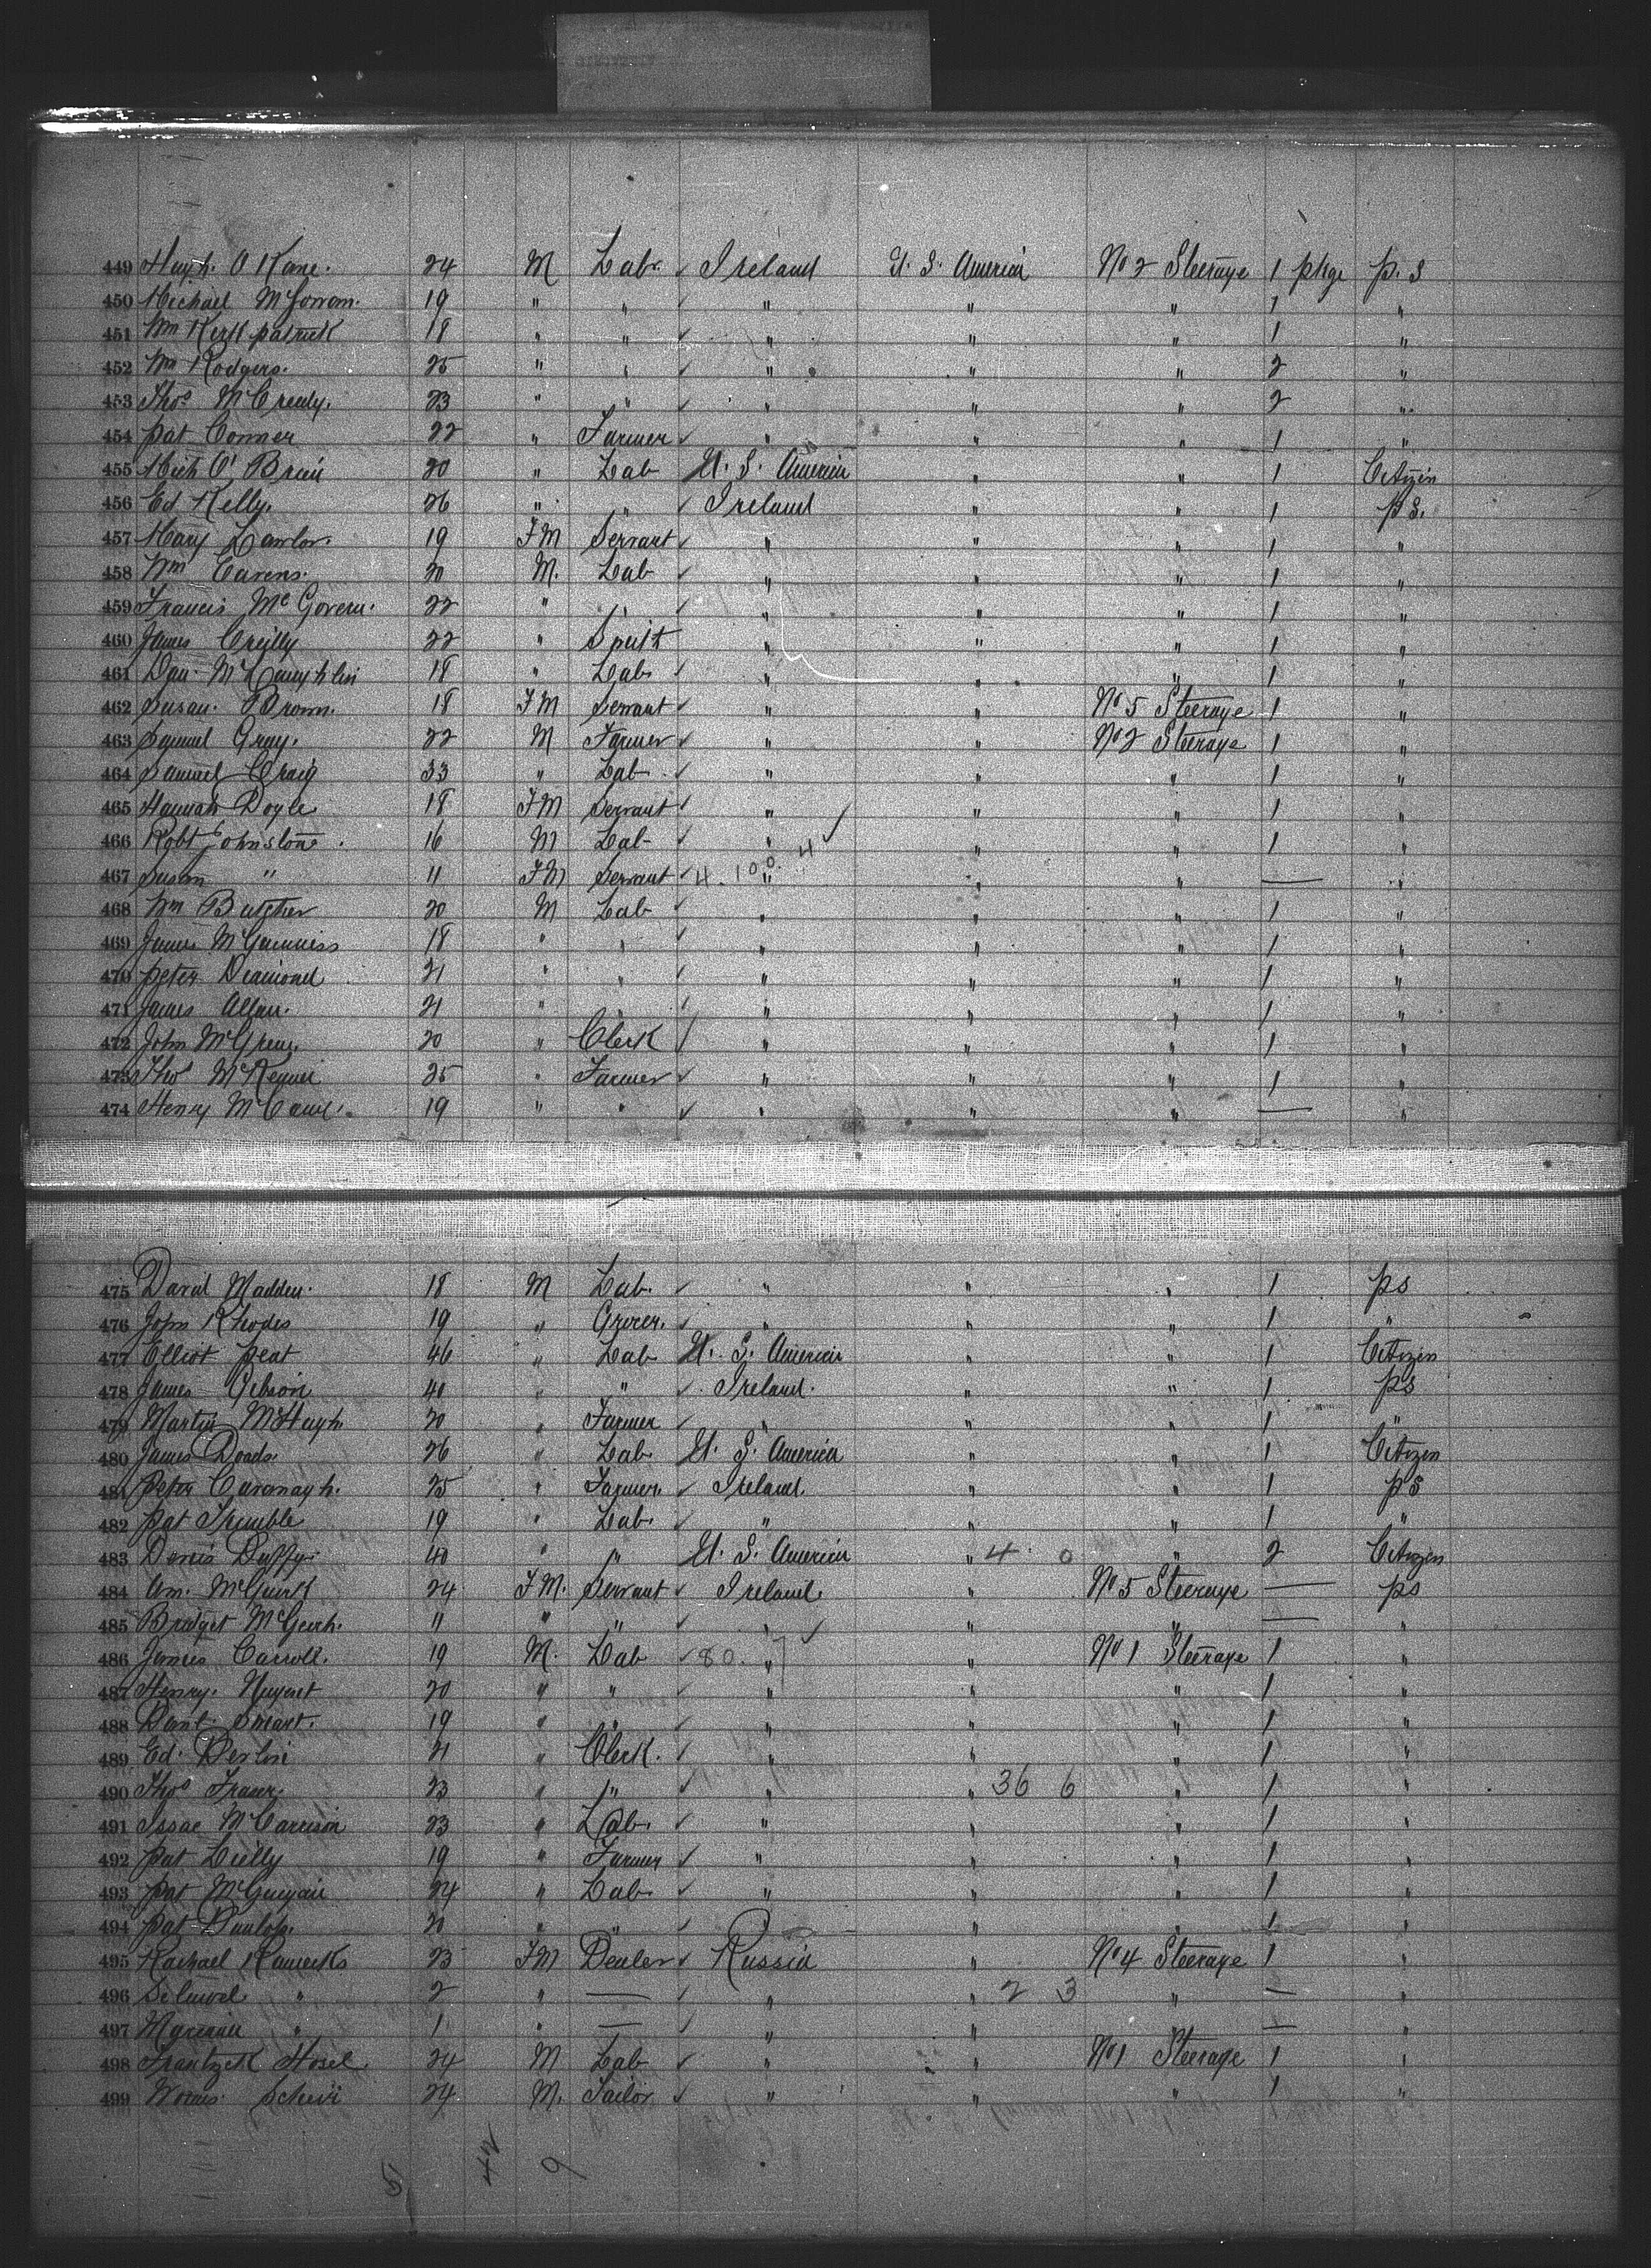 449 Hugh O Kane. 24 M Lab. ✓ Ireland U. S. America No 2 Steerage 1 pkge p. s
450 Michael McGorram. 19 " " ✓ " " " 1 "
451 Wm Kirkpatrick 18 " " ✓ " " " 1 "
452 Wm Rodgers. 25 " " ✓ " " " 2 "
453 Thos McCready. 23 " " ✓ " " " 2 "
454 Pat Conner 22 " Farmer ✓ " " " 1 "
455 Mich O' Brien 20 " Lab U. S. America " " 1 Citizen
456 Ed Kelly. 26 " " ✓ Ireland " " 1 p s.
457 Mary Lawlor. 19 FM Servant ✓ " " " 1 "
458 Wm Carens. 20 M. Lab ✓ " " " 1 "
459 Francis McGovern. 22 " " ✓ " " " 1 "
460 James Creilly 22 " " " " 1 "
461 Dan. McLaughlin 18 " Lab. ✓ " " " 1 "
462 Susan. Brown. 18 FM Servant ✓ " " No 5 Steerage 1 "
463 Samuel Gray. 22 M Farmer ✓ " " No 2 Steerage 1 "
464 Samuel Craig 33 " Lab. ✓ " " " 1 "
465 Hannah Doyle 18 FM Servant ✓ " " " 1 "
466 Robt Johnstone. 16 M Lab ✓ " 4 ✓ " " 1 "
467 Susan " 11 FM Servant ✓ 4. 100. " " " — "
468 Wm Butcher 20 M Lab ✓ " " " 1 "
469 James McGuinniss 18 " " ✓ " " " 1 "
470 Peter Diamond 21 " " ✓ " " " 1 "
471 James Allan. 21 " " ✓ " " " 1 "
472 John 20 " Clerk ✓ " " " 1 "
473 Thos 25 " Farmer ✓ " " " 1 "
474 Henry McCann. 19 " " ✓ " " " — "
475 David Madden. 18 M Lab. ✓ " " " 1 ps
476 John Rhodes 19 " Grocer. ✓ " " " 1 "
477 Elliot Peat 46 " Lab U. S. America " " 1 Citizen
478 James Gibson 40 " " ✓ Ireland. " " 1 ps
479 Martin McHugh 20 " Farmer ✓ " " " 1 "
480 James Doads. 26 " Lab U. S. America " " 1 Citizen
481 Peter Cavanagh. 25 " Farmer. ✓ Ireland. " " 1 ps
482 Pat Trimble 19 " Lab. ✓ " " " 1 "
483 Denis Duffy. 40 " " U. S. America " 4 0 " 2 Citizen
484 McGuirk 24 FM. Servant ✓ Ireland. " No 5 Steerage — ps
485 Bridget 11 " " ✓ " ✓ " " — "
486 James Carroll. 19 M. Lab ✓ 80. " 7 " No 1 Steerage 1 "
487 Henry. Nugent 20 " " ✓ " " " 1 "
488 Danl. Smart. 19 " " ✓ " " " 1 "
489 Ed. Devlin 21 " Clerk. ✓ " " " 1 "
490 Thos Fraser. 23 " " ✓ " " 36 6 " 1 "
491 Issac McCarrison 23 " Lab. ✓ " " " 1 "
492 Pat 19 " Farmer ✓ " " " 1 "
493 Pat McGuigan 24 " Lab. ✓ " " " 1 "
494 Pat Dunlop. 20 " " ✓ " " " 1 "
495 Rachael 23 FM Dealer ✓ Russia " No 4 Steerage 1 "
496 " 2 " — ✓ " " 2 3 " — "
497 " 1 " — ✓ " " " — "
498 Hosel 24 M Lab ✓ " " No 1 Steerage 1 "
499 24 M. Tailor ✓ " " " 1 "
5 42 9